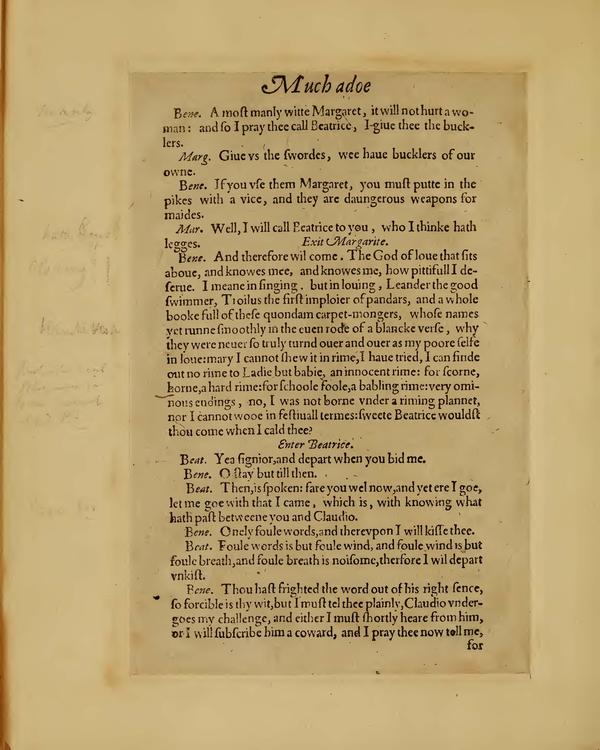 Much adoe
Bene. A moſt manly witte Margaret, it will not hurt a wo-
man: and ſo I pray thee call Beatrice, I giue thee the buck-
lers.
Marg. Giue vs the ſwordes, wee haue bucklers of our
owne.
Bene. If you vſe them Margaret, you muſt putte in the
pikes with a vice, and they are daungerous weapons for
maides.
Mar. Well, I will call Beatrice to you, who I thinke hath
legges. Exit Margarite.
Bene. And therefore wil come. The God of loue that ſits
aboue, and knowes mee, and knowes me, how pittifull I de-
ſerue. I meane in ſinging, but in louing, Leander the good
ſwimmer, Troilus the firſt imploier of pandars, and a whole
booke full of theſe quondam carpet-mongers, whoſe names
yet runne ſmoothly in the euen rode of a blancke verſe, why
they were neuer ſo truly turnd ouer and ouer as my poore ſelfe
in loue: mary I cannot ſhew it in rime, I haue tried, I can finde
out no rime to Ladie but babie, an innocent rime: for ſcorne,
horne, a hard rime: for ſchoole foole, a babling rime: very omi-
nous endings, no, I was not borne vnder a riming plannet,
nor I cannot wooe in feſtiuall termes: ſweete Beatrice wouldſt
thou come when I cald thee?
Enter Beatrice.
Beat. Yea ſignior, and depart when you bid me.
Bene. O ſtay but till then.
Beat. Then, is ſpoken: fare you wel now, and yet ere I goe,
let me goe with that I came, which is, with knowing what
hath paſt betweene you and Claudio.
Bene. Onely foule words, and therevpon I will kiſſe thee.
Beat. Foule words is but foule wind, and foule wind is but
foule breath, and foule breath is noiſome, therfore I wil depart
vnkiſt.
Bene. Thou haſt frighted the word out of his right ſence,
ſo forcible is thy wit, but I muſt tel thee plainly, Claudio vnder-
goes my challenge, and either I muſt ſhortly heare from him,
or I will ſubſcribe him a coward, and I pray thee now tell me,
for